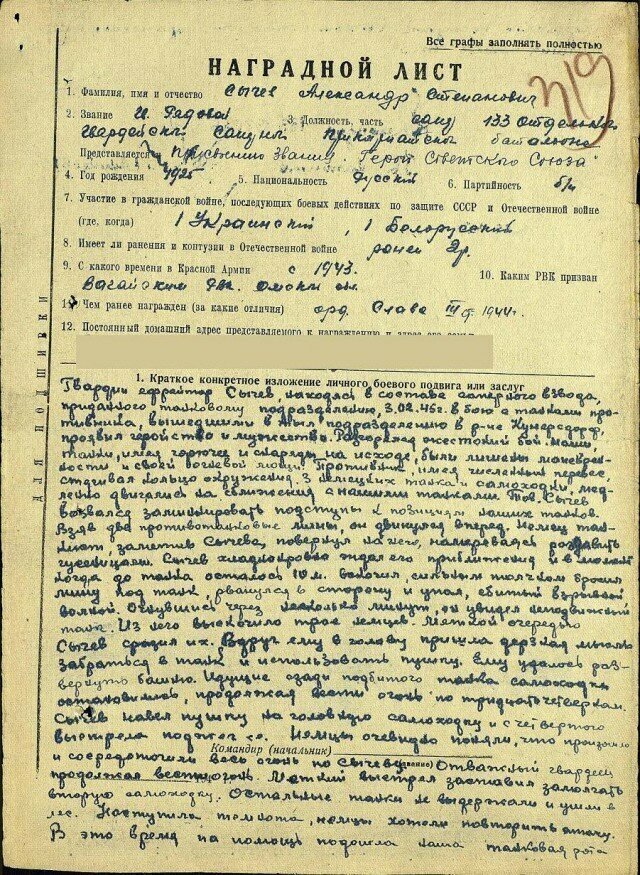 Все графы заполнять полностью
НАГРАДНОЙ ЛИСТ
319
1. Фамилия, имя и отчество Сычев Александр Степанович
2. Звание Рядовой 3. Должность, часть 133 отдельн.
Гвардейский
Представляется к присвоению звания „Герой Советского Союза"
4. Год рождения 1925. 5. Национальность Русский 6. Партийность б/п
7. Участие в гражданской войне, последующих боевых действиях по защите СССР и Отечественной войне
(где, когда) 1 Украинский, 1 Белорусский
8. Имеет ли ранения и контузии в Отечественной войне ранен 2р.
9. С какого времени в Красной Армии с 1943. 10. Каким РВК призван
Вагайским Омской обл.
11. Чем ранее награжден (за какие отличия) орд. Слава III ст. 1944г.
12. Постоянный домашний адрес представляемого к награждению и адрес его семьи
ДЛЯ ПОДШИВКИ
1. Краткое конкретное изложение личного боевого подвига или заслуг
Гвардии ефрейтор Сычев, находясь в составе саперного взвода,
приданного танковому подразделению, 3.02.45г. в бою с танками про-
тивника, вышедшими в тыл подразделению в р-не Кунерсдорф,
проявил геройство и мужество. Разгорелся жестокий бой. Наши
танки, имея горючее и снаряды на исходе, были лишены маневрен-
ности и своей огневой мощи. Противник, имея численный перевес,
сжимал кольцо окружения. 3 немецких танка и самоходки, мед-
ленно двигались на сближения с нашими танками. Тов. Сычев
вызвался заминировать подступы к позициям наших танков.
Взяв два противотанковые мины, он двинулся вперед. Немец тан-
кист, заметив Сычева, повернул на него, намереваясь раздавить
гусеницами. Сычев хладнокровно ждал его приближения и в момент
когда до танка осталось 10 м. вскочил, сильным толчком бросил
мину под танк, рванулся в сторону и упал, сбитый взрывной
волной. Очнувшись через несколько минут, он увидел неподвижный
танк. Из него выскочило трое немцев. Меткой очередью
Сычев сразил их. Вдруг ему в голову пришла дерзкая мысль
забраться в танк и использовать пушку. Ему удалось раз-
вернуть башню. Идущие сзади подбитого танка самоходки
остановились, продолжая вести огонь по тридцатьчетверкам.
Сычев навел пушку на головную самоходку и с четвертого
выстрела поджег ее. Немцы очевидно поняли, что произошло
Командир (начальник)
и сосредоточили весь огонь по Сычеву. Отважный гвардеец
(звание)
продолжал вести огонь. Меткий выстрел заставил замолчать
вторую самоходку. Остальные танки не выдержали и ушли в
лес. Наступила темнота, немцы хотели повторить атаку.
В это время на помощь подошла наша танковая рота